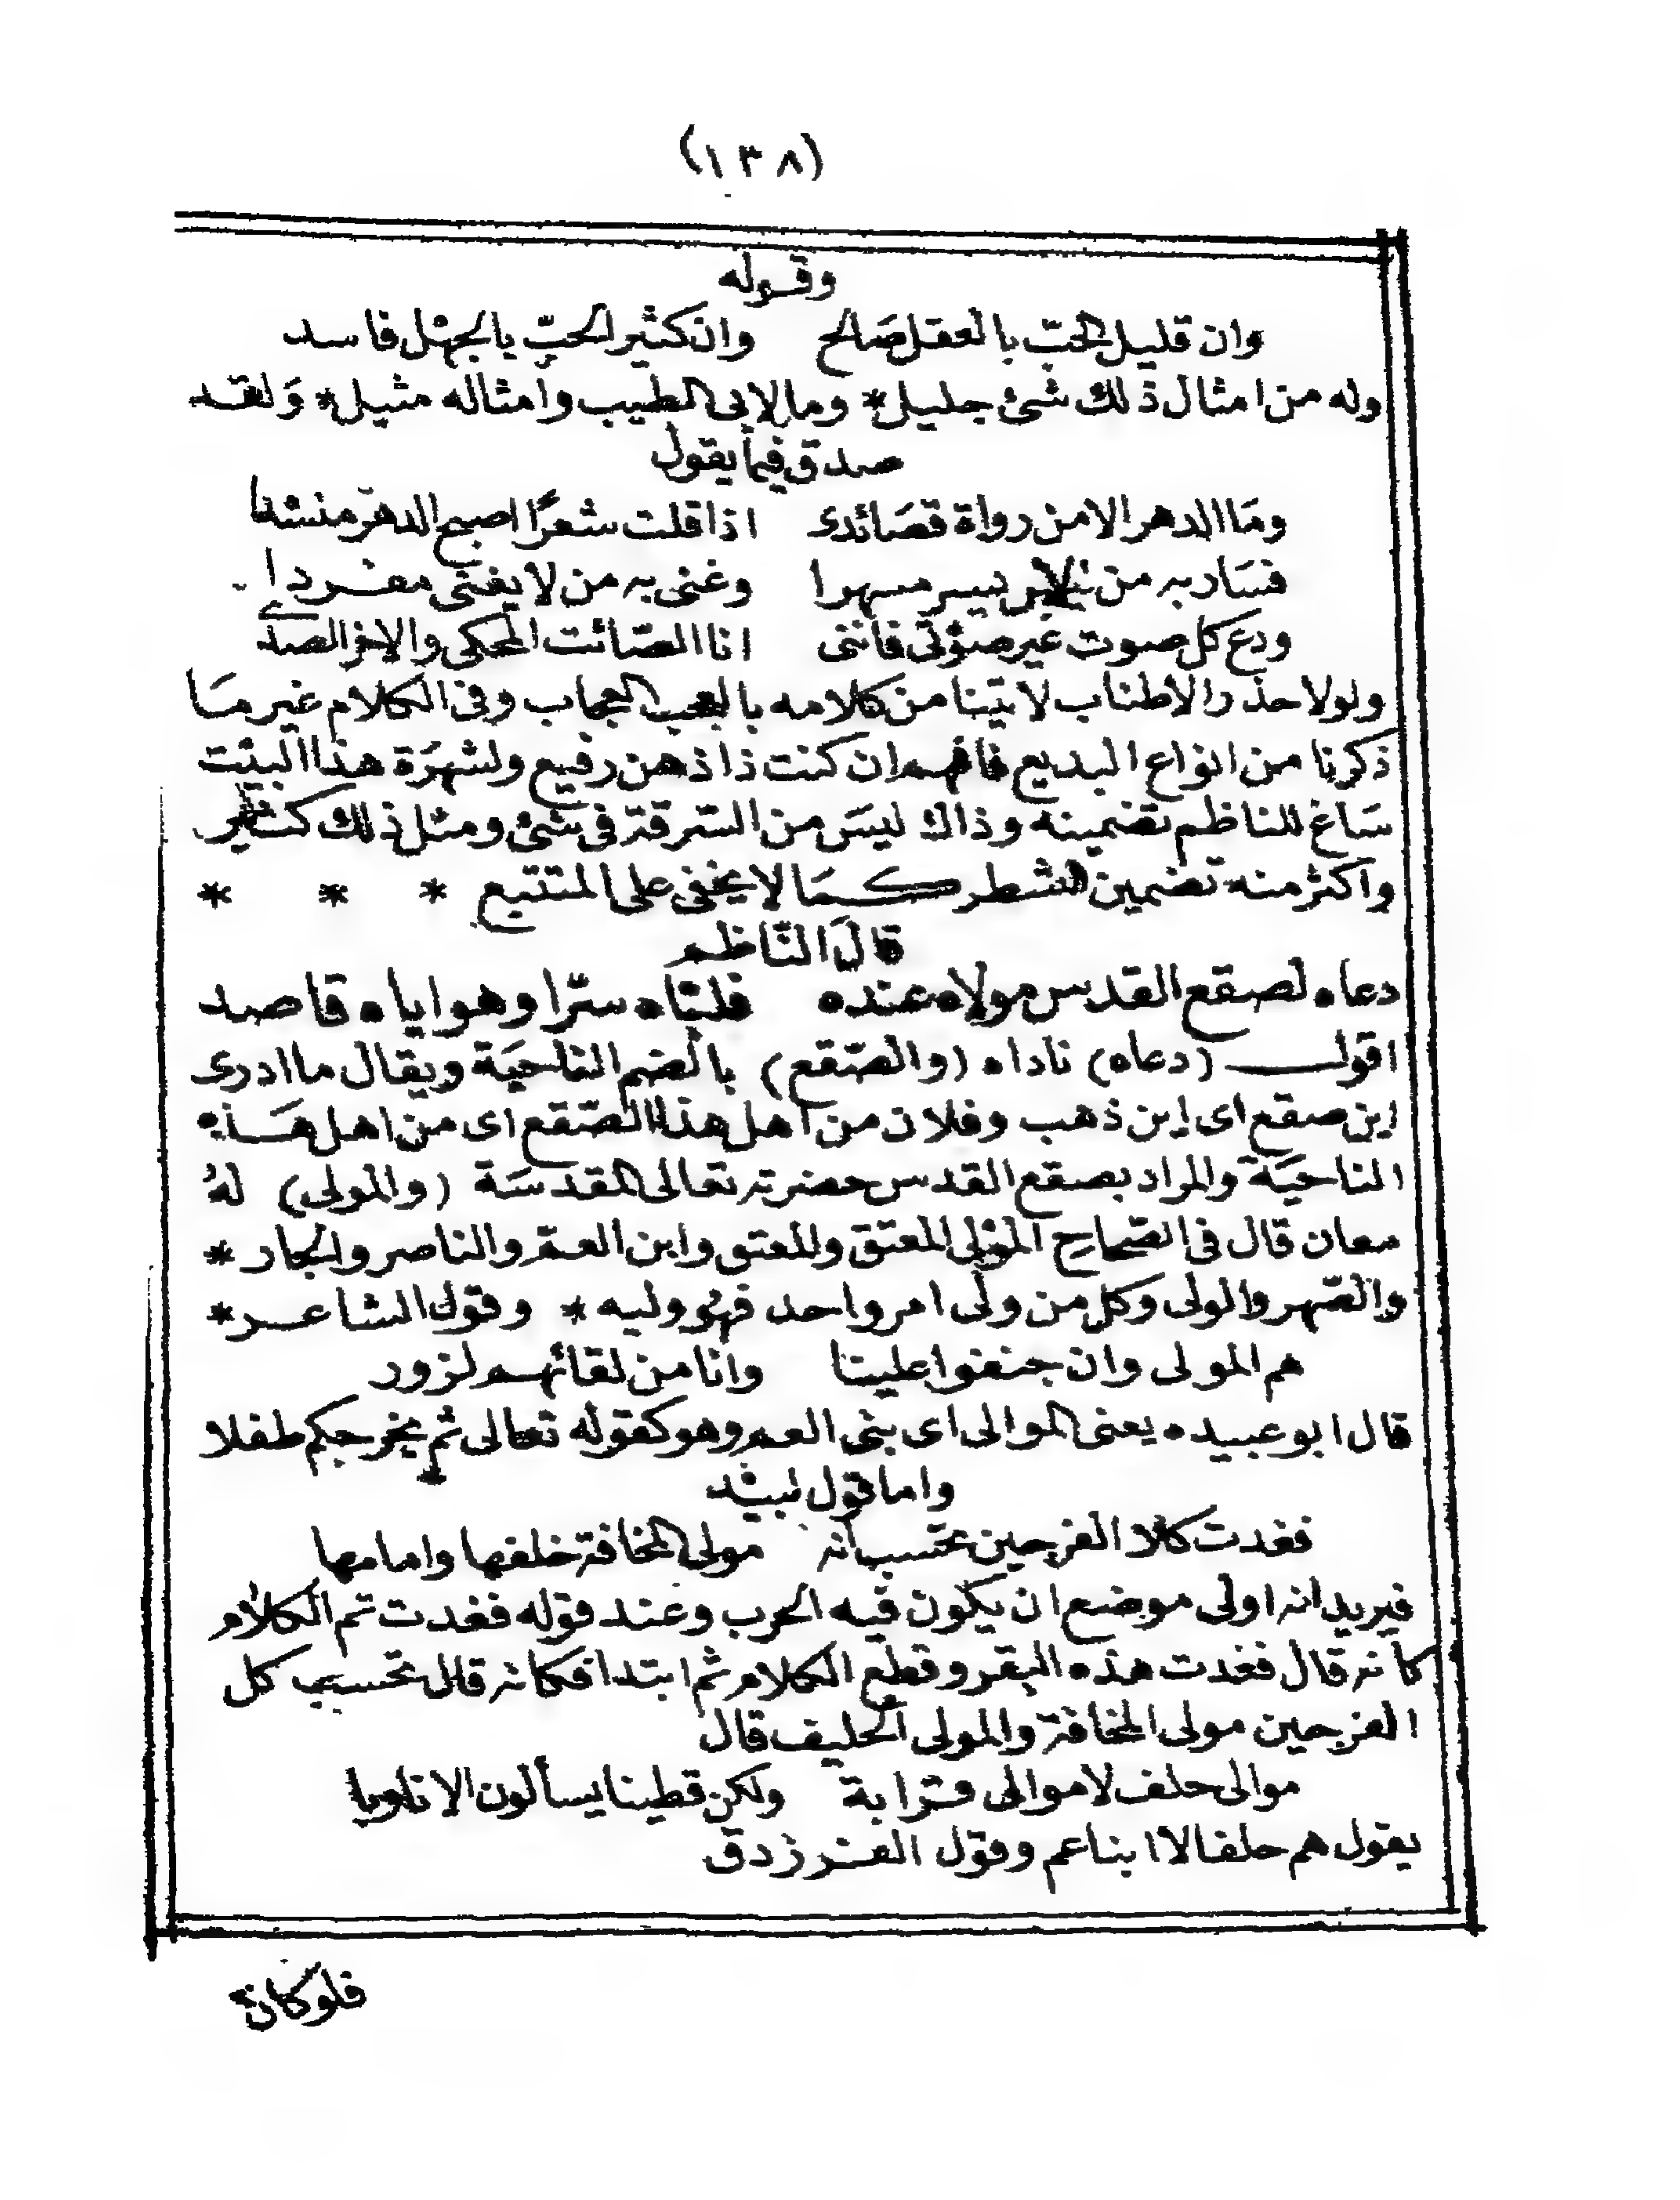 (١٣٨)
وقوله
وان قليل الحبّ بالعقل صَالح وان كثير الحبّ بالجهْل فاسد
وله من امثال ذلك شئ جليل* وما لابى الطيب وامثاله مثيل* وَلقد
صدق فيما يقول
ومَا الدهر الا من رواة قصَائدى اذا قلت شعرًا اصبح الدهر منشدا
فسَار به من لا يسير مسهرا وغنى به من لا يغنى مغردا
ودع كل صوت غير صوْتى فاننى انا الصَّائت المحكى والاخر الصدى
ولولا حذر الاطناب لاتينا من كلامه بالعجب العجاب وفى الكلام غير مَا
ذكرنا من انواع البديع فافهم ان كنت ذا ذهن رفيع ولشهرَة هذا البيْت
سَاغ للناظم تضمينه وذاك ليسَ من السّرقة فى شئ ومثل ذلك كثير
واكثر منه تضمين الشطر كمَا لا يخفى على المتتبع * * *
قالَ النّاظم
دعاه لصقع القدس مولاه عنده فلبّاه سرّا وهو اياه قاصد
اقول (دعاه) ناداه (والصّقع) بالضم الناحيَة ويقال ما ادرى
اين صقع اى اين ذهب وفلان من اهل هذا الصّقع اى من اهل هَذه
الناحيَة والمراد بصقع القدس حضرته تعالى المقدسَة (والمولى) لهُ
معان قال فى الصّحاح الموْلى المعتق والمعتق وابن العمّ والناصر والجار *
والصّهر والولى وكل من ولى امر واحد فهُو وليه * وقول الشاعر*
هم المولى وان جنفوا علينا وانا من لقائهم لزور
قال ابو عبيده يعنى الموالى اى بنى العم وهو كقوله تعالى ثم يخرجكم طفلا
واما قول لبيْد
فغدت كلا الفرجين تحسب انه مولى المخافة خلفها وامامها
فيريد انه اولى موضع ان يكون فيه الحرب وعند قوله فغدت تم الكلام
كانه قال فغدت هذه البقر وقطع الكلام ثم ابتدا فكانه قال تحسب كل
الفرجين مولى المخافة والمولى الحليف قال
موالى حلف لا موالى قرابة ولكن قطينا يسألون الاتاويا
يقول هم حلفا لا ابنا عم وقول الفرزدق
فلوكان